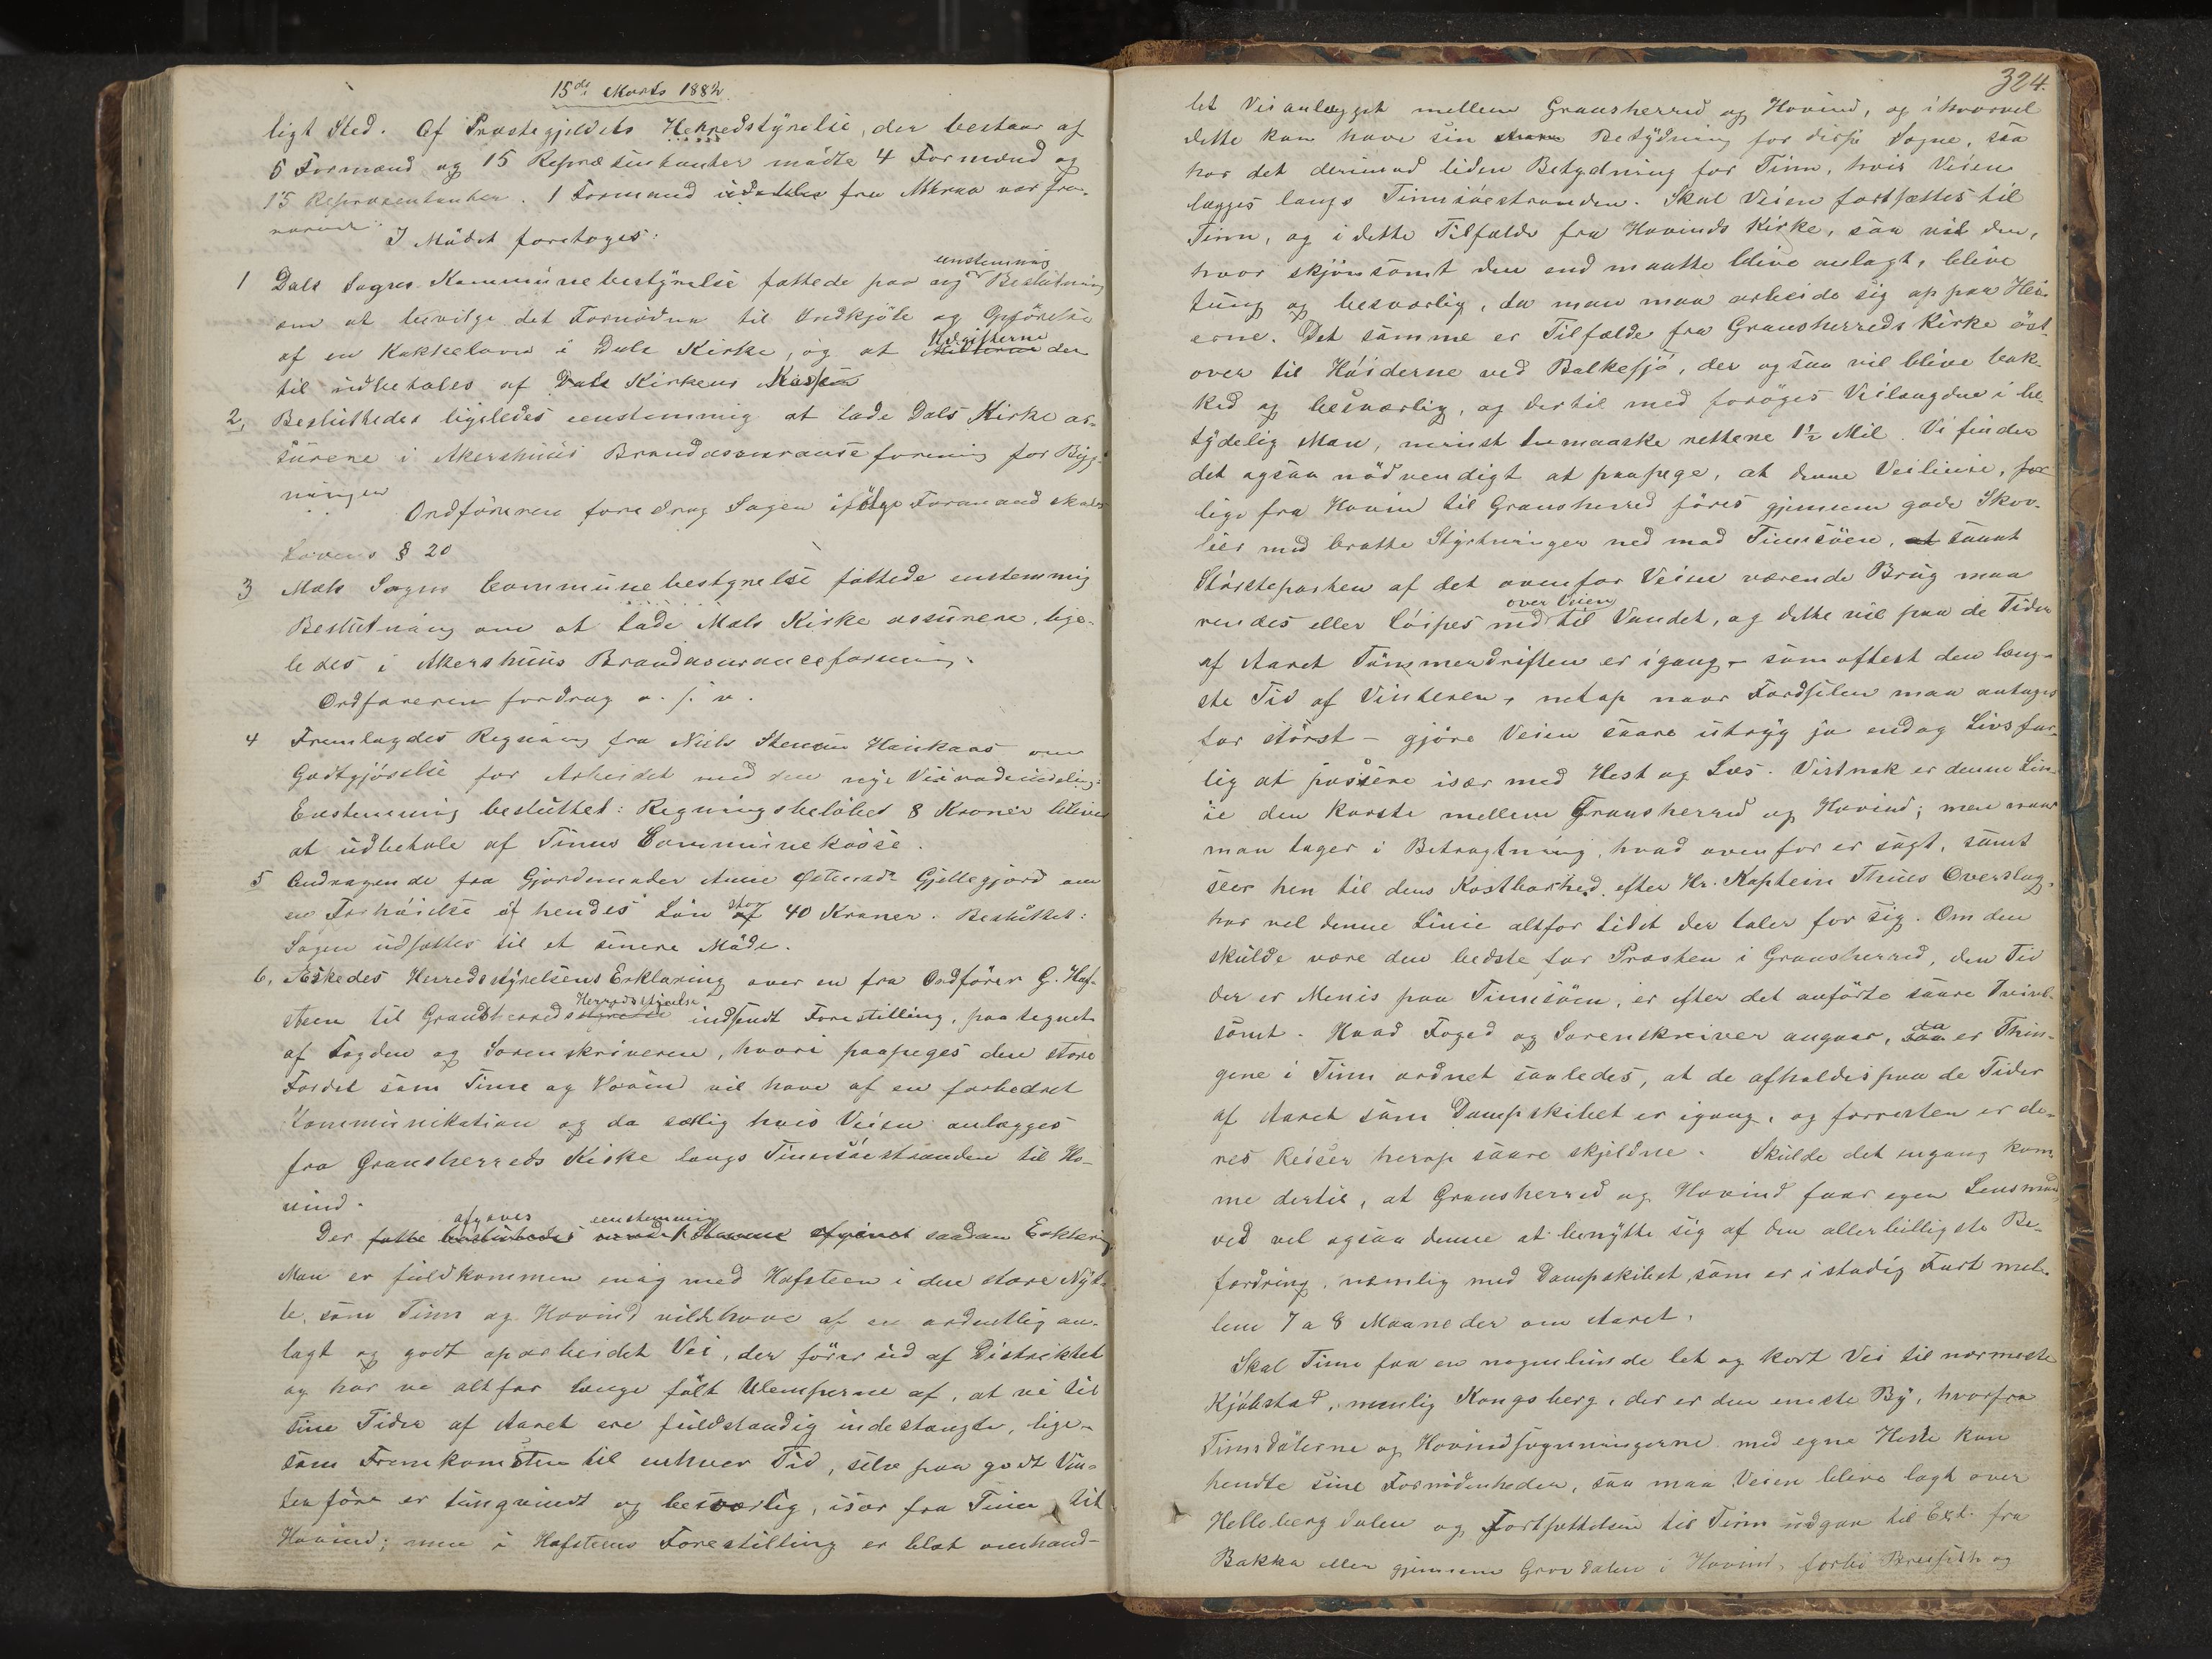 15de Marts 1882.
ligt Sted. Af Præstegjeldets Herredstyrelse, der bestaar af
5 Formænd og 15 Repræsentanter mødte 4 Formænd og
15 Repræsentanter. 1 Formand fra var fra-
værende.
I Mødet foretoges:
1 Dals Sogns Kommunebestyrelse fattede paa ny eenstemmig Beslutning
om at bevilge det Fornødne til Indkjöb og Opförelse
af en Kakkelovn i Dals Kirke, og at Udgifterne der
til udbetales af Dals Kirkens Kasse
2, Besluttedes ligeledes eenstemmig at lade Dals Kirke as-
surere i Akershuus Brandassuranceforening for Byg-
ninger
Ordföreren foredrog Sagen ifølge Formandskabs
Lovens § 20
3 Mæls Sogns Communebestyrelse fattede enstemmig
Beslutning om at lade Mæls Kirke assurere, lige-
ledes i Akershuus Brandassuranceforening.
Ordføreren fordrog o. s. v.
4 Fremlagdes Regning fra Niels Steinsen Haukaas om
Godtgjörelse for Arbeidet med den nye Veirodeindeling.
Enstemmig besluttet: Regningsbeløbet 8 Kroner bliver
at udbetale af Tinns Communekasse.
5 Andragende fra Gjordemoder Anne Østensd. Gjellegjord om
en Forhöielse af hendes Lön stor 40 Kroner. Besluttet:
Sagen udsættes til et senere Möde.
6, Æskedes Herredsstyrelsens Erklæring over en fra Ordförer G. Haf-
steen til Gransherreds Herredsstyrelse indsendt Forestilling, paategnet
af Fogden og Sorenskriveren, hvori paapeges den store
Fordel som Tinn og Hovind vil have af en forbedret
Kommunikation og da særlig hvis Veien anlægges
fra Gransherreds Kirke langs Tinnsöestranden til Ho-
vind.
Der afgaves eenstemmig saadan Erklæring
Man er fuldkommen enig med Hafsteen i den store Nyt-
te, som Tinn og Hovind vilde have af en ordentlig an-
lagt og godt oparbeidet Vei, der förer ud af Distriktet
og har vi altfor længe fölt Ulemperne af, at vi til
sine Tider af Aaret ere fuldstændig indestængte, lige-
som Fremkomsten til enhver Tid, selv paa godt Vin-
terföre er tungvindt og besværlig, især fra Tinn til
Hovind; men i Hafsteens Forestilling er blot omhand-
324.
let Veianlægget mellem Gransherred og Hovind, og ihvorvel
dette kan have sin Betydning for disse Sogne, saa
har det derimod liden Betydning for Tinn, hvis Veien
lægges langs Tinnsöestranden. Skal Veien fortsættes til
Tinn, og i dette Tilfælde fra Hovinds Kirke, saa vil den,
hvor skjönsomt den end maatte blive anlagt, blive
tung og besværlig, da man maa arbeide sig op paa Hei-
erne. Det samme er Tilfælde fra Gransherreds Kirke öst-
over til Höiderne ved Bolkesjö, der ogsaa vil blive bak-
ked og besværlig, og dertil med foröges Veilængden i be-
tydelig Mon, mindst maaske rettere 1½ Mil. Vi finder
det ogsaa nödvendigt at paapege, at denne Veilinie, for
lige fra Hovin til Gransherred föres gjennem gode Skov-
lier med bratte Styrtninger ned mod Tinnsöen, samt
Störsteparten af det ovenfor Veien værende Brug maa
rendes eller löipes ned over Veien til Vandet, og dette vil paa de Tider
af Aaret Tömmerdriften er igang – som oftest den læng-
ste Tid af Vinteren, netop naar Færdselen maa antages
for störst – gjöre Veien saare utryg ja endog Livsfar-
lig at passere især med Hest og Læs. Vistnok er denne Lin-
ie den korste mellem Gransherred og Hovind; men naar
man tager i Betragtning, hvad ovenfor er sagt, samt
seer hen til dens Kostbarhed efter Hr. Kaptein Thues Overslag,
har vel denne Linie altfor lidet der taler for sig. Om den
skulde være den bedste for Præsten i Gransherred, den Tid
der er Menis paa Tinnsöen, er efter det anförte saare Tvivl-
somt. Hvad Foged og Sorenskriver angaar, da er Thin-
gene i Tinn ordnet saaledes, at de afholdes paa de Tider
af Aaret som Dampskibet er igang, og forresten er de-
res Reiser herop saare skjeldne. Skulde det engang kom-
me dertil, at Gransherred og Hovind faar egen Lensmand
ved vel ogsaa denne at benytte sig af den allerbilligste Be-
fordring, nemlig med Dampskibet som er i stadig Fart mel-
lem 7 a 8 Maaneder om Aaret.
Skal Tinn faa en nogenlunde let og kort Vei til nærmeste
Kjöbstad, nemlig Kongsberg, der er den eneste By, hvorfra
Tinndölerne og Hovindsogningerne med egne Heste kan
hendte sine Fornödenheder, saa maa Veien blive lagt over
Helleberg dalen og Fortsættelsen til Tinn udgaa til Ext. fra
Bakka eller gjennem Grovdalen i Hovind, forbi og